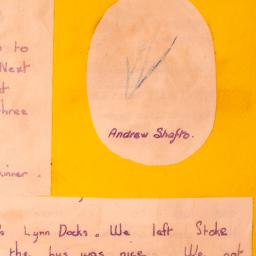 to
Next
three
Andrew Shafto.
Lynn Docks. We left Stoke
the bus was nice. We got